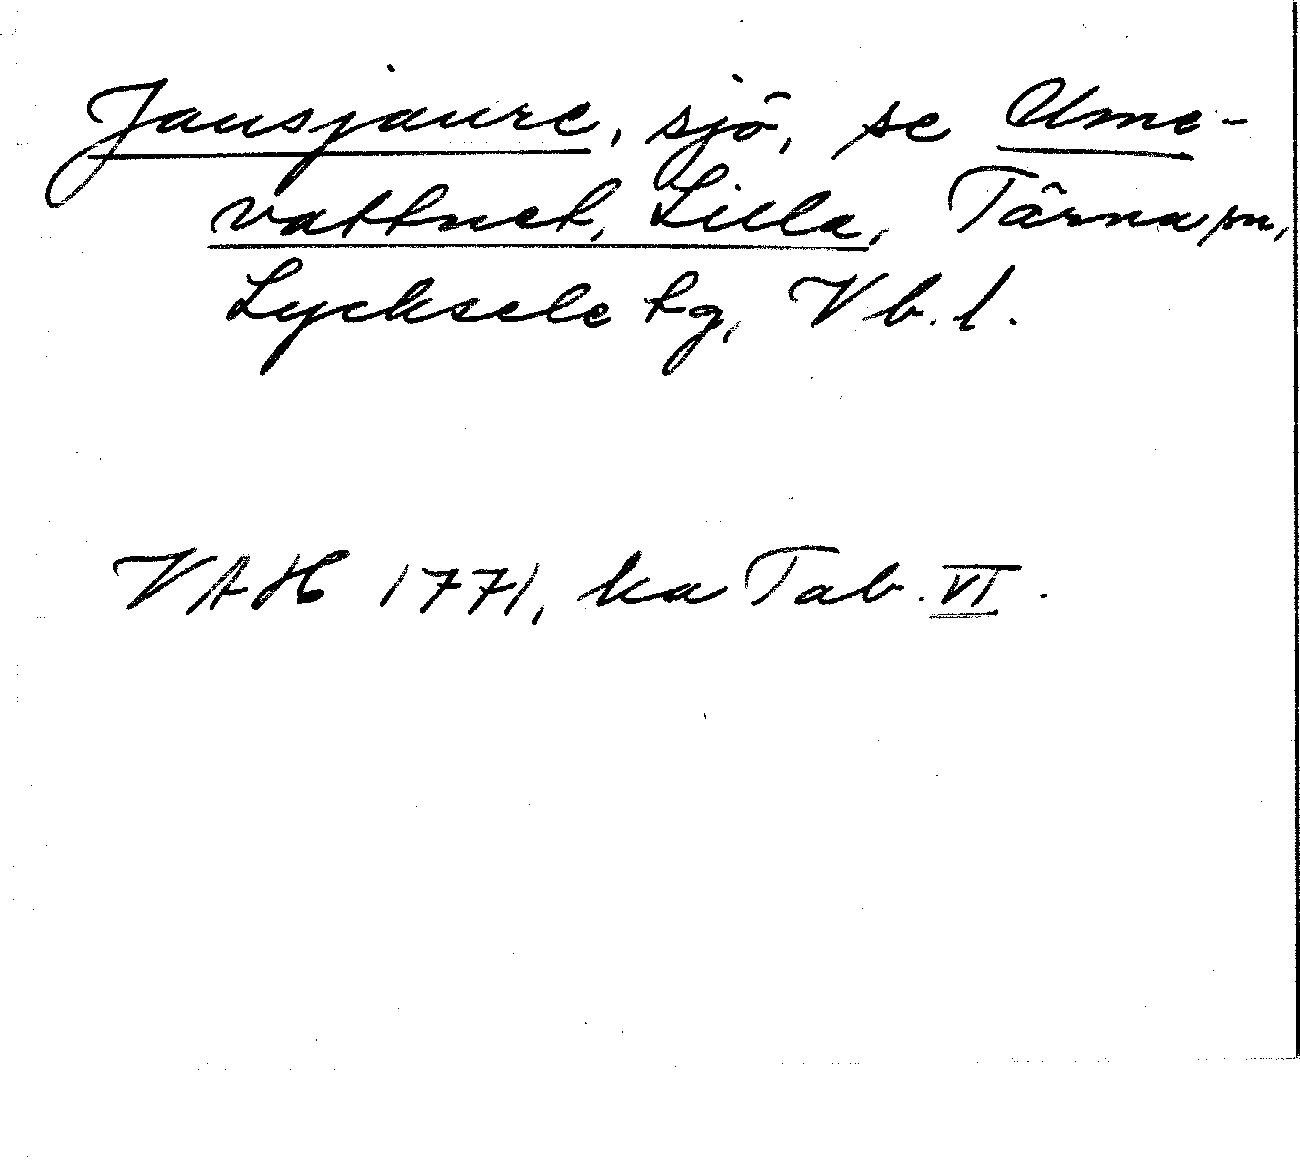 Jausjaure, sjö, se Ume-
vattnet, Lilla, Tärna sn,
Lycksele tg, Vb. l.
VAH 1771, ka Tab. VI.